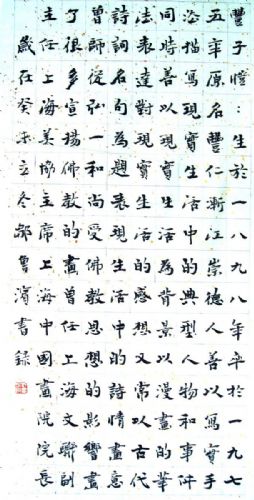 豐子愷:生於一八九八年卒於一九七
五年原名豐仁浙江崇德人善以寫實手
法描寫現實生活中的典型人物和事件
同時善以現實生活為背景以漫畫的筆
法表達對現實生活的感想又常以古代
詩詞名句為題表現生活中的詩情畫意
曾師從弘一和尚受佛教思想的影響畫
了很多弘揚佛教的畫曾任上海文聯副
主任上海美協主席上海中國畫院院長
歲在癸未立冬鄒魯濱書錄